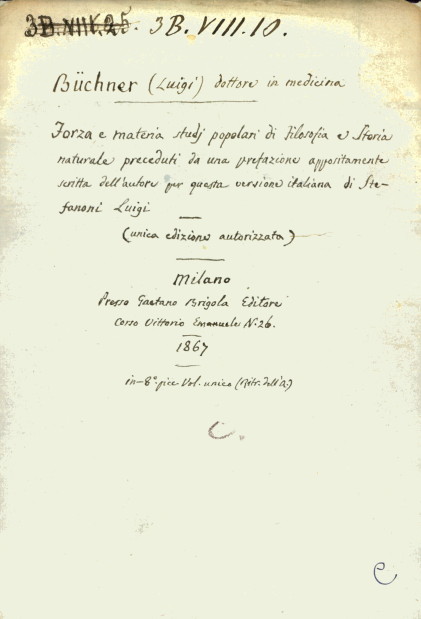 3B.VIII.25. 3B.VIII.10.
Büchner (Luigi) dottore in medicina
Forza e materia studj popolari di Filosofia e Storia
naturale preceduti da una prefazione appositamente
scritta dell'autore per questa versione italiana di Ste-
fanoni Luigi
(unica edizione autorizzata)
Milano
Presso Gaetano Brigola Editore
Corso Vittorio Emanuele N. 26.
1867
in-8° picc Vol. unico (Ritr. dell'A.)
C.
e